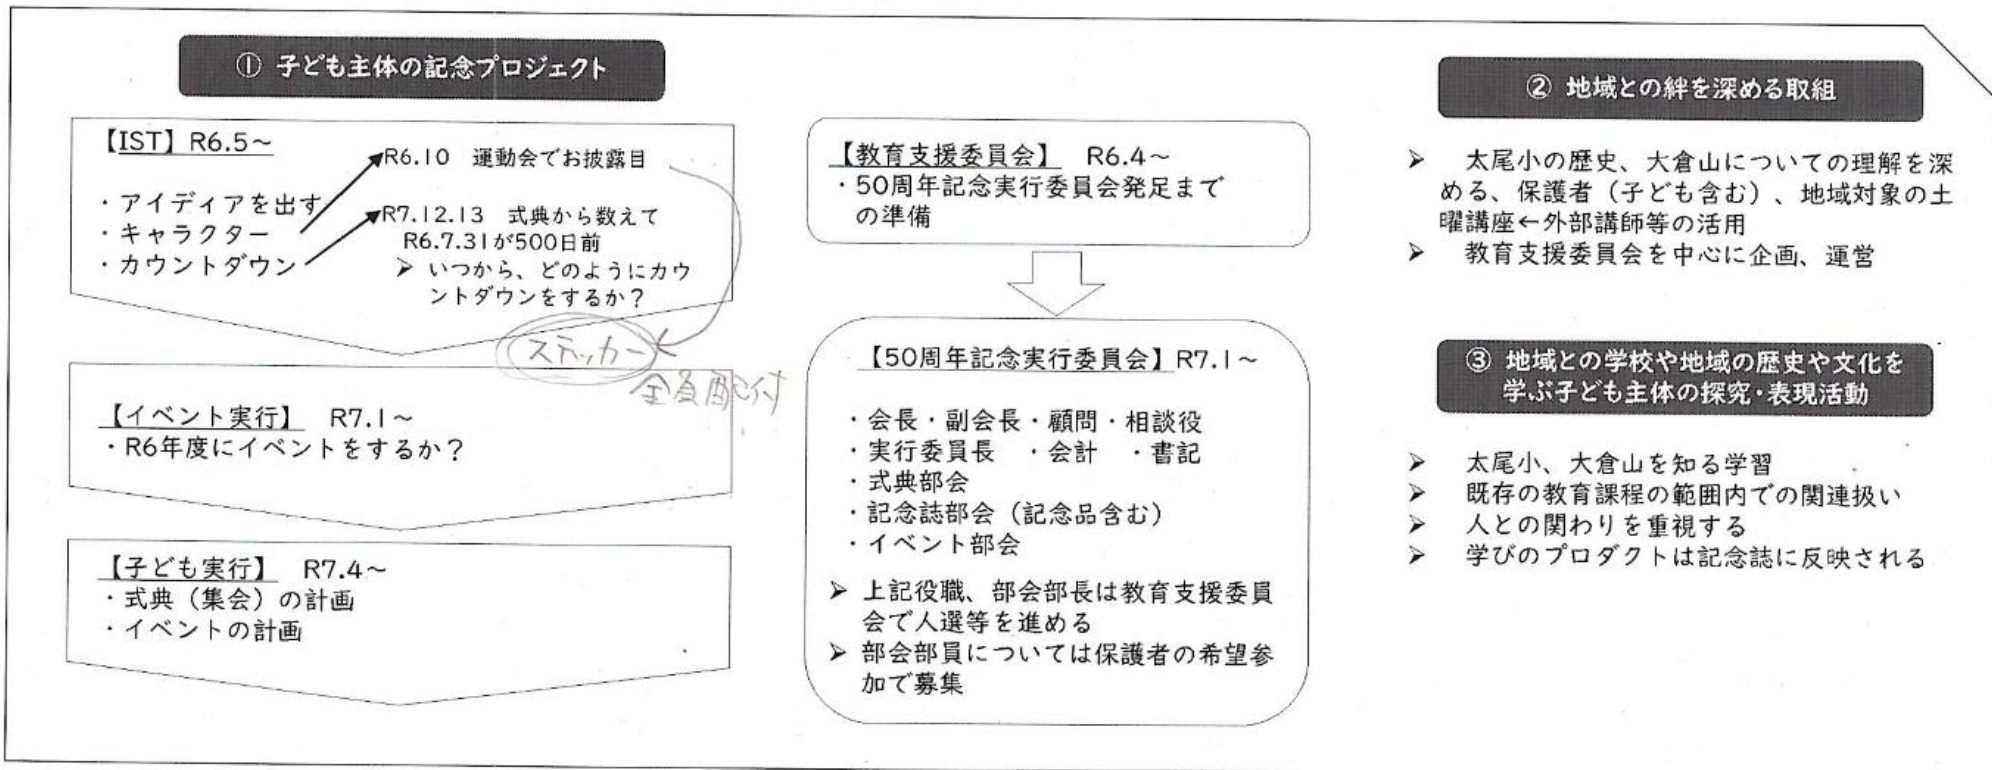 ① 子ども主体の記念プロジェクト
【IST】R6.5~
・アイディアを出す
・キャラクター
・カウントダウン
R6.10 運動会でお披露目
R7.12.13 式典から数えて
R6.7.31が500日前
➢ いつから、どのようにカウ
ントダウンをするか？
ステッカー
全員配付
【イベント実行】 R7.1~
・R6年度にイベントをするか？
【子ども実行】 R7.4~
・式典（集会）の計画
・イベントの計画
【教育支援委員会】 R6.4~
・50周年記念実行委員会発足まで
の準備
【50周年記念実行委員会】R7.1~
・会長・副会長・顧問・相談役
・実行委員長 ・会計 ・書記
・式典部会
・記念誌部会（記念品含む）
・イベント部会
➢ 上記役職、部会部長は教育支援委員
会で人選等を進める
➢ 部会部員については保護者の希望参
加で募集
② 地域との絆を深める取組
➢ 太尾小の歴史、大倉山についての理解を深
める、保護者（子ども含む）、地域対象の土
曜講座←外部講師等の活用
➢ 教育支援委員会を中心に企画、運営
③ 地域との学校や地域の歴史や文化を
学ぶ子ども主体の探究・表現活動
➢ 太尾小、大倉山を知る学習
➢ 既存の教育課程の範囲内での関連扱い
➢ 人との関わりを重視する
➢ 学びのプロダクトは記念誌に反映される